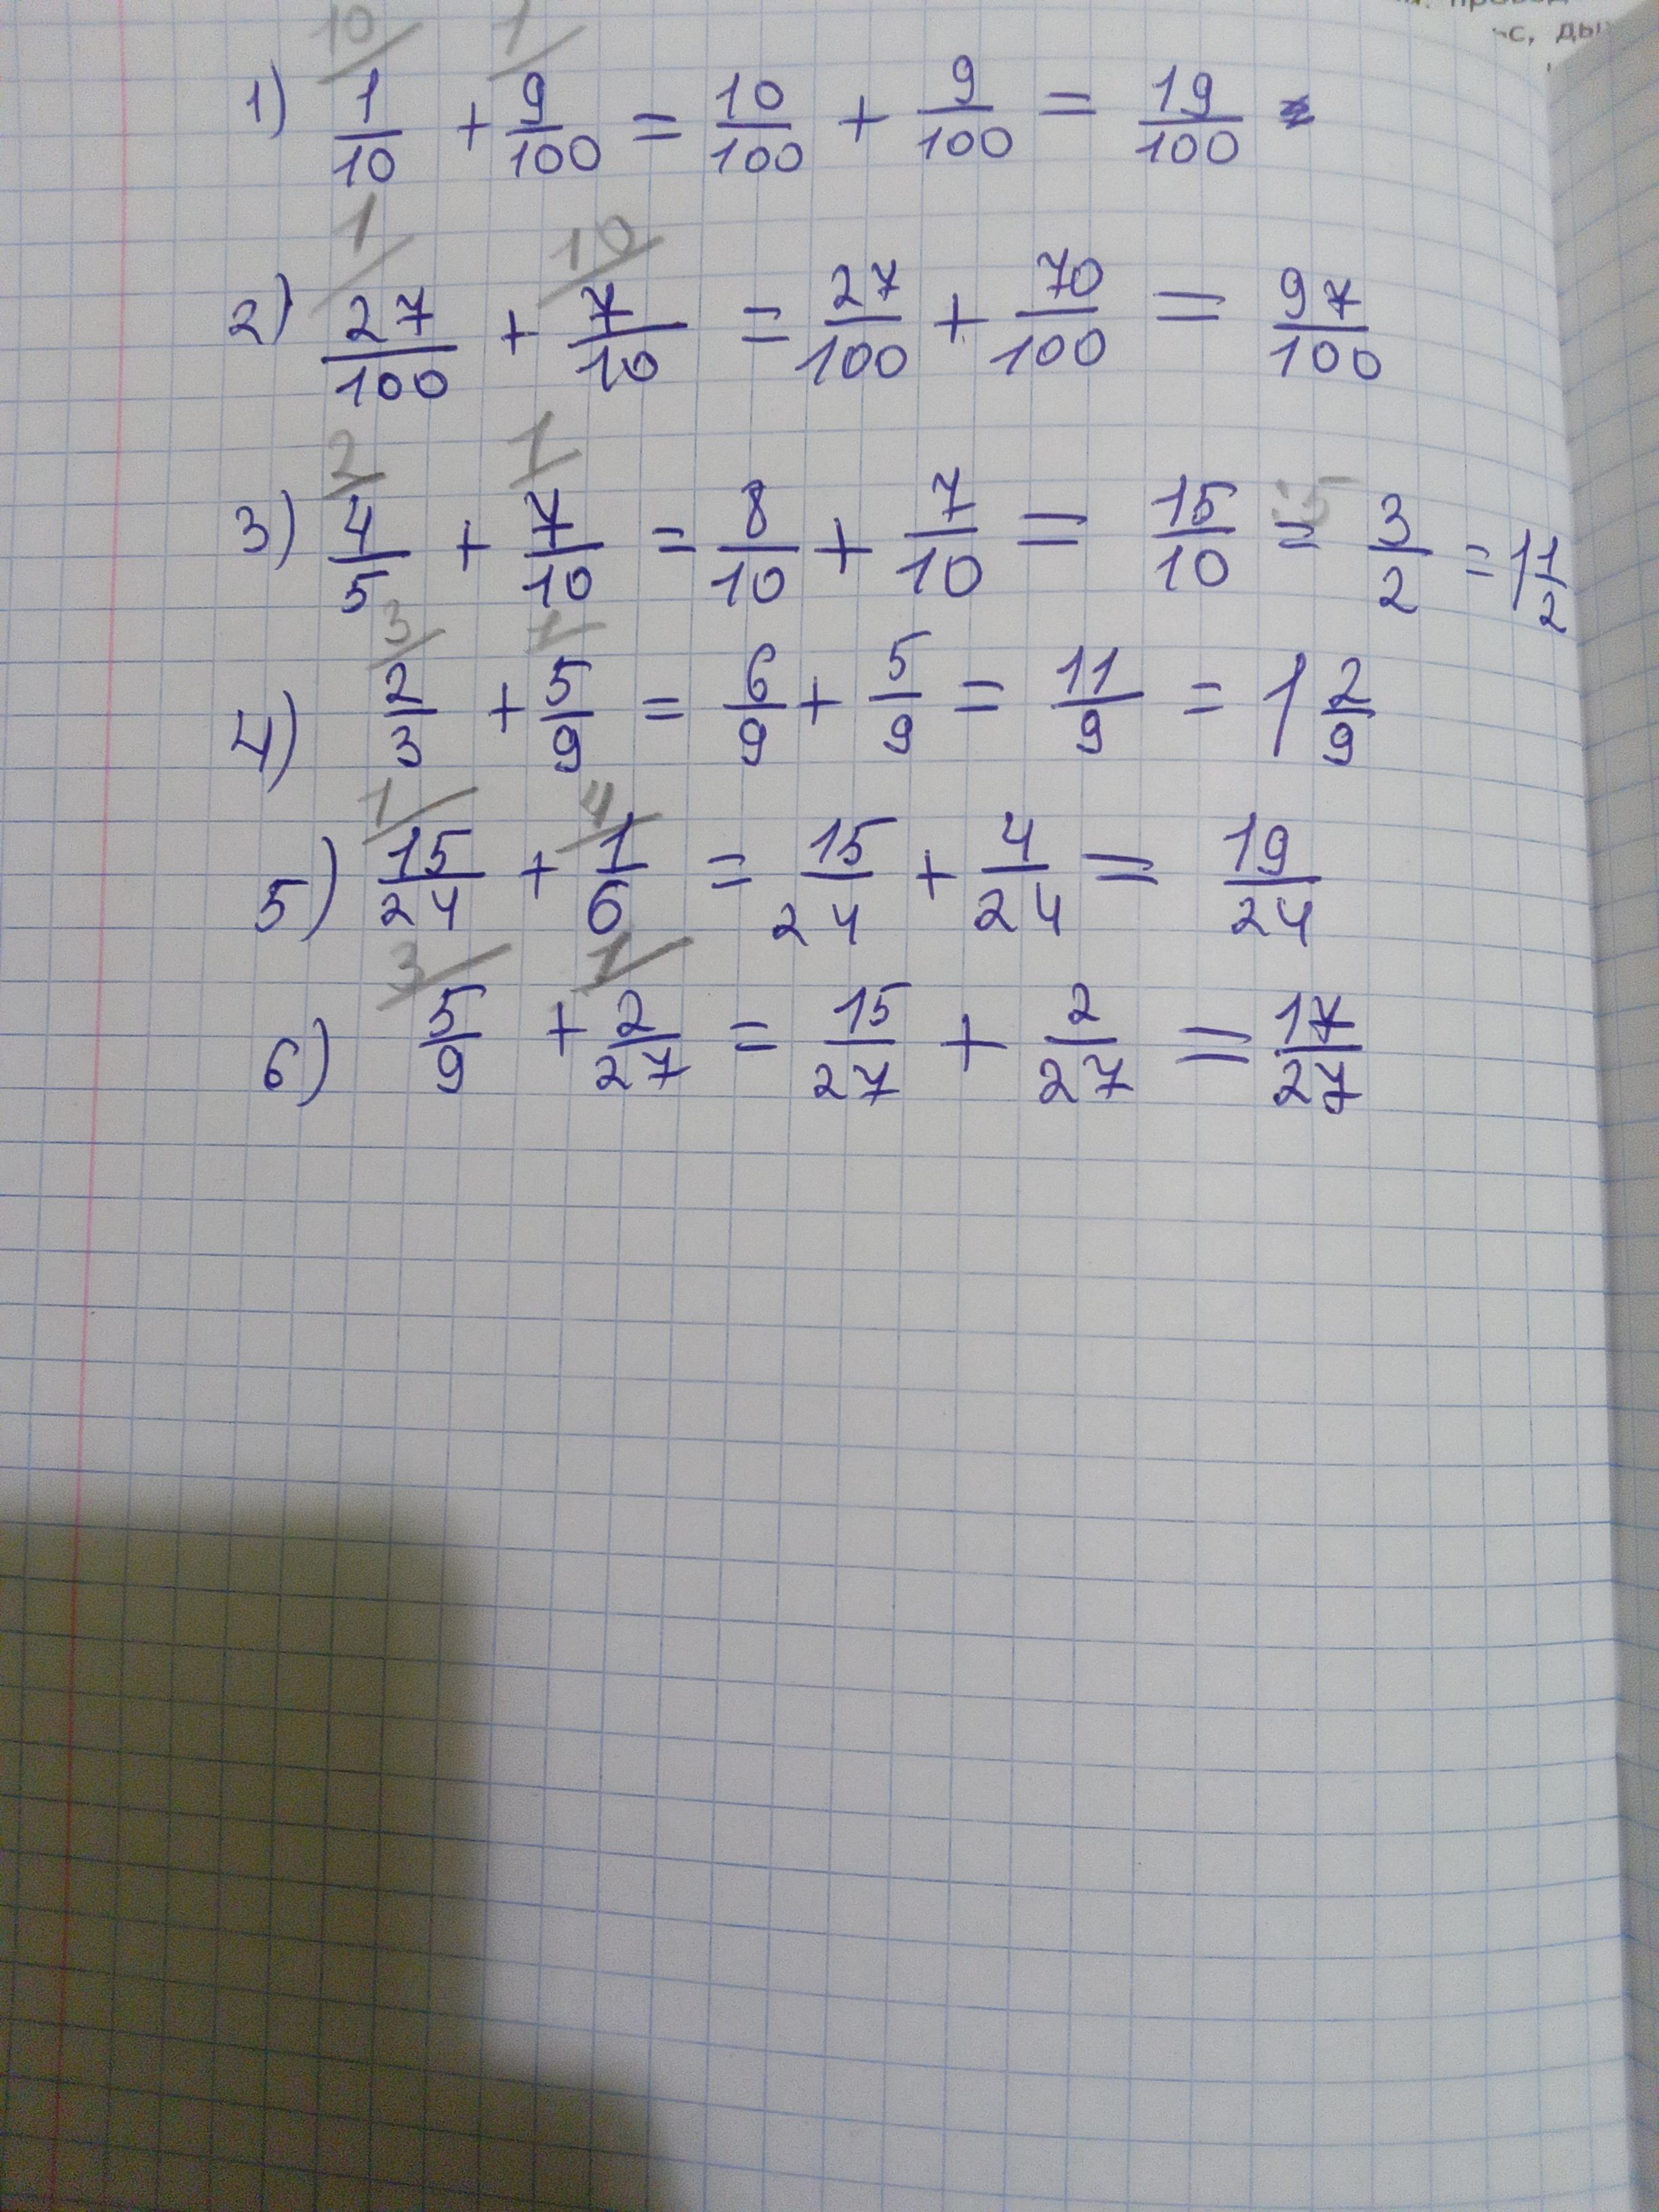 с, ды
10 1
1) 1/10 + 9/100 = 10/100 + 9/100 = 19/100
1 10
2) 27/100 + 7/10 = 27/100 + 70/100 = 97/100
2 1
3) 4/5 + 7/10 = 8/10 + 7/10 = 15/10 = 3/2 = 1 1/2
3 1
4) 2/3 + 5/9 = 6/9 + 5/9 = 11/9 = 1 2/9
1 4
5) 15/24 + 1/6 = 15/24 + 4/24 = 19/24
3 1
6) 5/9 + 2/27 = 15/27 + 2/27 = 17/27